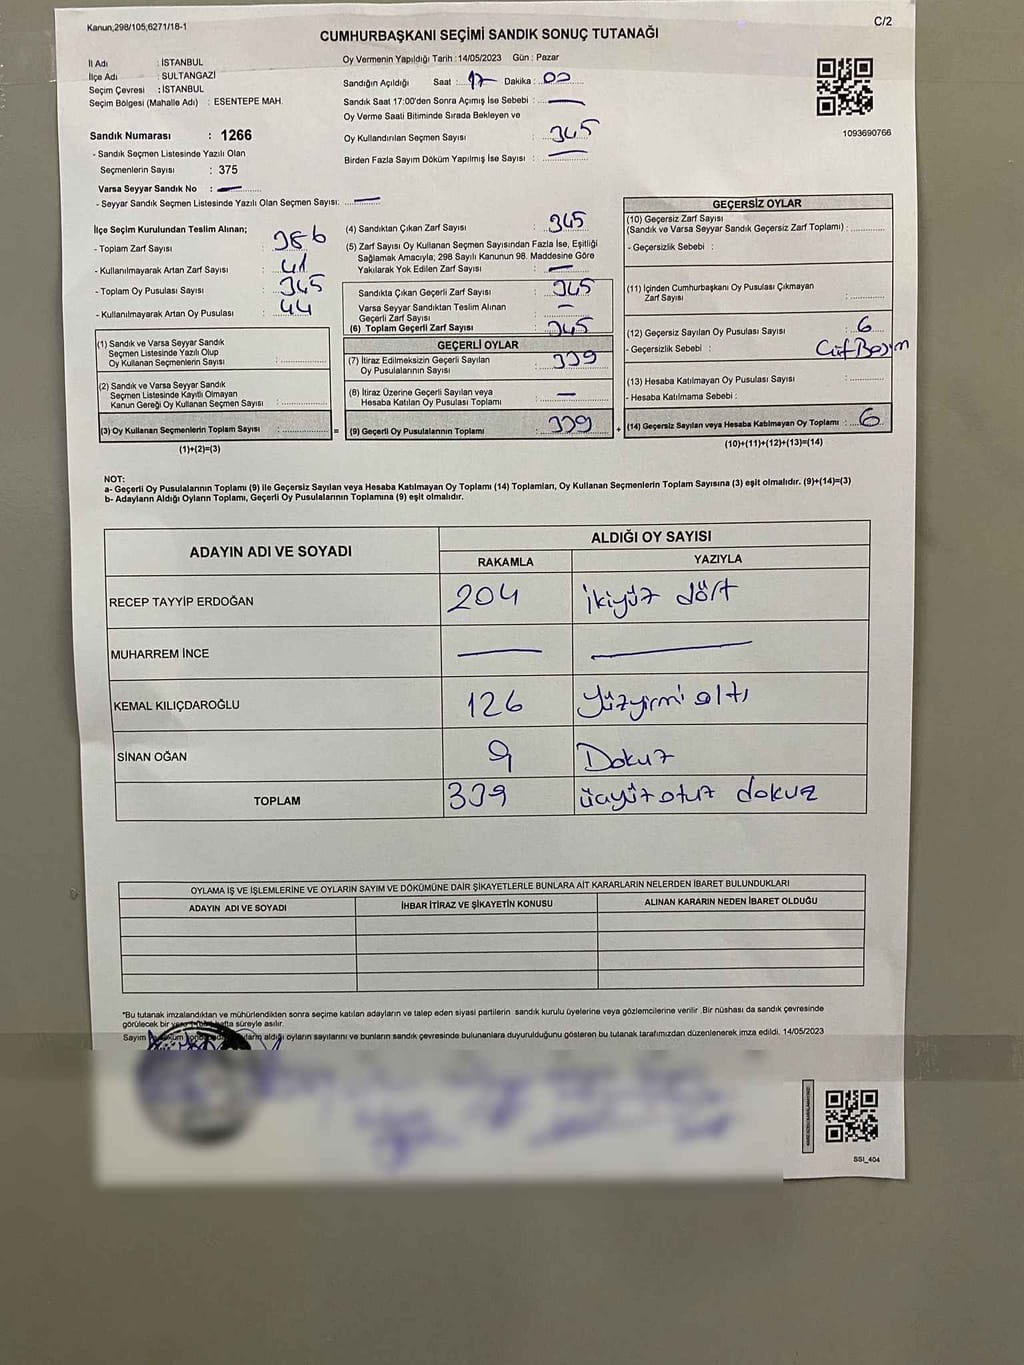 Kanun,298/105,6271/18-1
C/2
CUMHURBAŞKANI SEÇİMİ SANDIK SONUÇ TUTANAĞI
İl Adı : İSTANBUL
İlçe Adı : SULTANGAZİ
Seçim Çevresi : İSTANBUL
Seçim Bölgesi (Mahalle Adı) : ESENTEPE MAH.
Sandık Numarası : 1266
- Sandık Seçmen Listesinde Yazılı Olan
Seçmenlerin Sayısı : 375
Varsa Seyyar Sandık No : —
- Seyyar Sandık Seçmen Listesinde Yazılı Olan Seçmen Sayısı: —
Oy Vermenin Yapıldığı Tarih : 14/05/2023 Gün : Pazar
Sandığın Açıldığı Saat : 17 Dakika : 00
Sandık Saat 17:00'den Sonra Açımış İse Sebebi : —
Oy Verme Saati Bitiminde Sırada Bekleyen ve
Oy Kullandırılan Seçmen Sayısı : 345
Birden Fazla Sayım Döküm Yapılmış İse Sayısı : —
1093690766
İlçe Seçim Kurulundan Teslim Alınan;
- Toplam Zarf Sayısı : 386
- Kullanılmayarak Artan Zarf Sayısı : 41
- Toplam Oy Pusulası Sayısı : 345
- Kullanılmayarak Artan Oy Pusulası : 44
(1) Sandık ve Varsa Seyyar Sandık
Seçmen Listesinde Yazılı Olup
Oy Kullanan Seçmenlerin Sayısı :
(2) Sandık ve Varsa Seyyar Sandık
Seçmen Listesinde Kayıtlı Olmayan
Kanun Gereği Oy Kullanan Seçmen Sayısı :
(3) Oy Kullanan Seçmenlerin Toplam Sayısı : =
(1)+(2)=(3)
(4) Sandıktan Çıkan Zarf Sayısı : 345
(5) Zarf Sayısı Oy Kullanan Seçmen Sayısından Fazla İse, Eşitliği
Sağlamak Amacıyla; 298 Sayılı Kanunun 98. Maddesine Göre
Yakılarak Yok Edilen Zarf Sayısı : —
Sandıkta Çıkan Geçerli Zarf Sayısı : 345
Varsa Seyyar Sandıktan Teslim Alınan
Geçerli Zarf Sayısı : —
(6) Toplam Geçerli Zarf Sayısı : 345
GEÇERLİ OYLAR
(7) İtiraz Edilmeksizin Geçerli Sayılan
Oy Pusulalarının Sayısı : 339
(8) İtiraz Üzerine Geçerli Sayılan veya
Hesaba Katılan Oy Pusulası Toplamı : —
(9) Geçerli Oy Pusulalarının Toplamı : 339 +
GEÇERSİZ OYLAR
(10) Geçersiz Zarf Sayısı
(Sandık ve Varsa Seyyar Sandık Geçersiz Zarf Toplamı) :
- Geçersizlik Sebebi :
(11) İçinden Cumhurbaşkanı Oy Pusulası Çıkmayan
Zarf Sayısı :
(12) Geçersiz Sayılan Oy Pusulası Sayısı : 6
- Geçersizlik Sebebi : Çift Basım
(13) Hesaba Katılmayan Oy Pusulası Sayısı :
- Hesaba Katılmama Sebebi :
(14) Geçersiz Sayılan veya Hesaba Katılmayan Oy Toplamı : 6
(10)+(11)+(12)+(13)=(14)
NOT:
a- Geçerli Oy Pusulalarının Toplamı (9) ile Geçersiz Sayılan veya Hesaba Katılmayan Oy Toplamı (14) Toplamları, Oy Kullanan Seçmenlerin Toplam Sayısına (3) eşit olmalıdır. (9)+(14)=(3)
b- Adayların Aldığı Oyların Toplamı, Geçerli Oy Pusulalarının Toplamına (9) eşit olmalıdır.
ADAYIN ADI VE SOYADI ALDIĞI OY SAYISI
RAKAMLA YAZIYLA
RECEP TAYYİP ERDOĞAN 204 ikiyüz dört
MUHARREM İNCE — —
KEMAL KILIÇDAROĞLU 126 yüzyirmi altı
SİNAN OĞAN 9 Dokuz
TOPLAM 339 üçyüz otuz dokuz
OYLAMA İŞ VE İŞLEMLERİNE VE OYLARIN SAYIM VE DÖKÜMÜNE DAİR ŞİKAYETLERLE BUNLARA AİT KARARLARIN NELERDEN İBARET BULUNDUKLARI
ADAYIN ADI VE SOYADI İHBAR İTİRAZ VE ŞİKAYETİN KONUSU ALINAN KARARIN NEDEN İBARET OLDUĞU
"Bu tutanak imzalandıktan ve mühürlendikten sonra seçime katılan adayların ve talep eden siyasi partilerin sandık kurulu üyelerine veya gözlemcilerine verilir .Bir nüshası da sandık çevresinde
görülecek bir yere hafta süreyle asılır.
Sayım aldığı oyların sayılarını ve bunların sandık çevresinde bulunanlara duyurulduğunu gösteren bu tutanak tarafımızdan düzenlenerek imza edildi. 14/05/2023
SSI_404